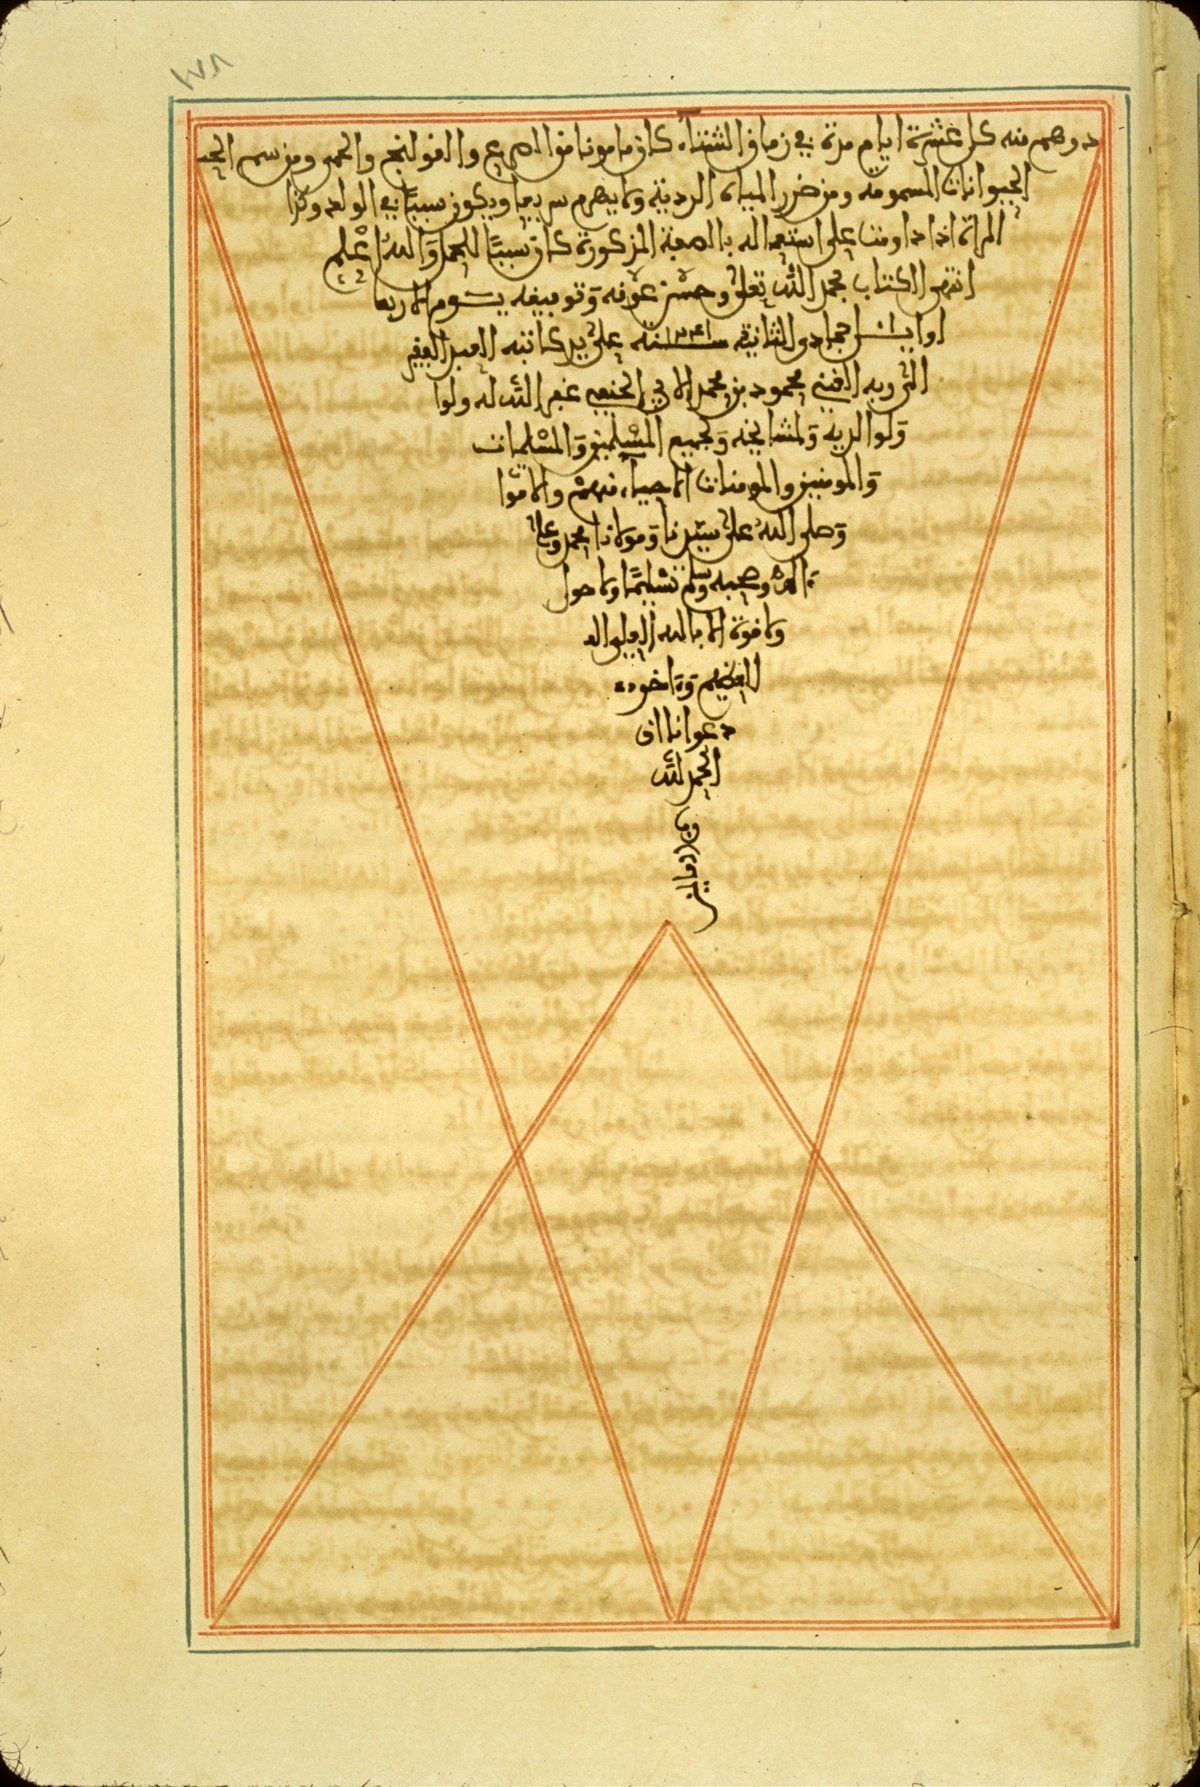 ١٧٨
درهم منه كل عشرة ايام مرة في زمان الشتاء كان مامونا من الصرع والقولنج والحمى ومن سم الحيـ
الحيوانات المسمومة ومن ضرر المياه الردية ولا يهرم سريعا ويكون سببا في الولد وكذا
المراة اذا داومت على استعماله بالصفة المذكورة كان سببا للحمل والله اعلم
انتهى الكتاب بحمد الله تعلى وحسن عونه وتوفيقه يــوم الاربعا
اوايــل جمادى الثانية ســنة على يد كاتبه العبد الفقير
الى ربه الغني محمود بن محمد الحنفي غفر الله له ولوا
ولوالديه ولمشايخه ولجميع المسلمين والمسلمات
والمومنين والمومنات الاحياء منهم والاموا
وصلى الله على سيدنا ومولانا محمد وعلى
اله وصحبه وسلم تسليما ولا حول
ولا قوة الا بالله العلي العـ
العظيم واخر
دعوانا ان
الحمد لله
رب
العالمين